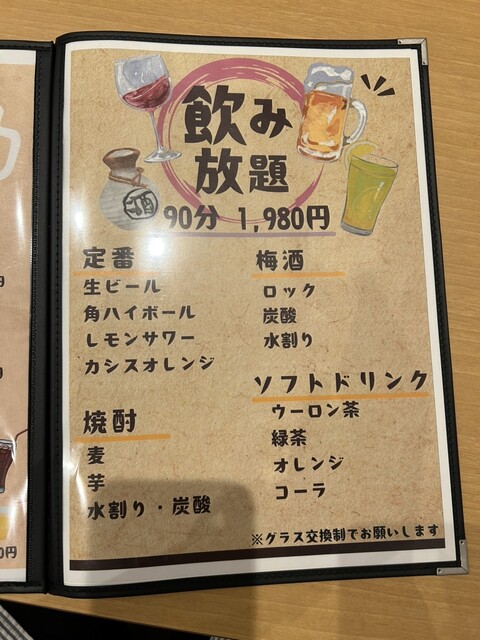 飲み
放題
酒
90分 1,980円
定番
生ビール
角ハイボール
レモンサワー
カシスオレンジ
焼酎
麦
芋
水割り・炭酸
梅酒
ロック
炭酸
水割り
ソフトドリンク
ウーロン茶
緑茶
オレンジ
コーラ
※グラス交換制でお願いします